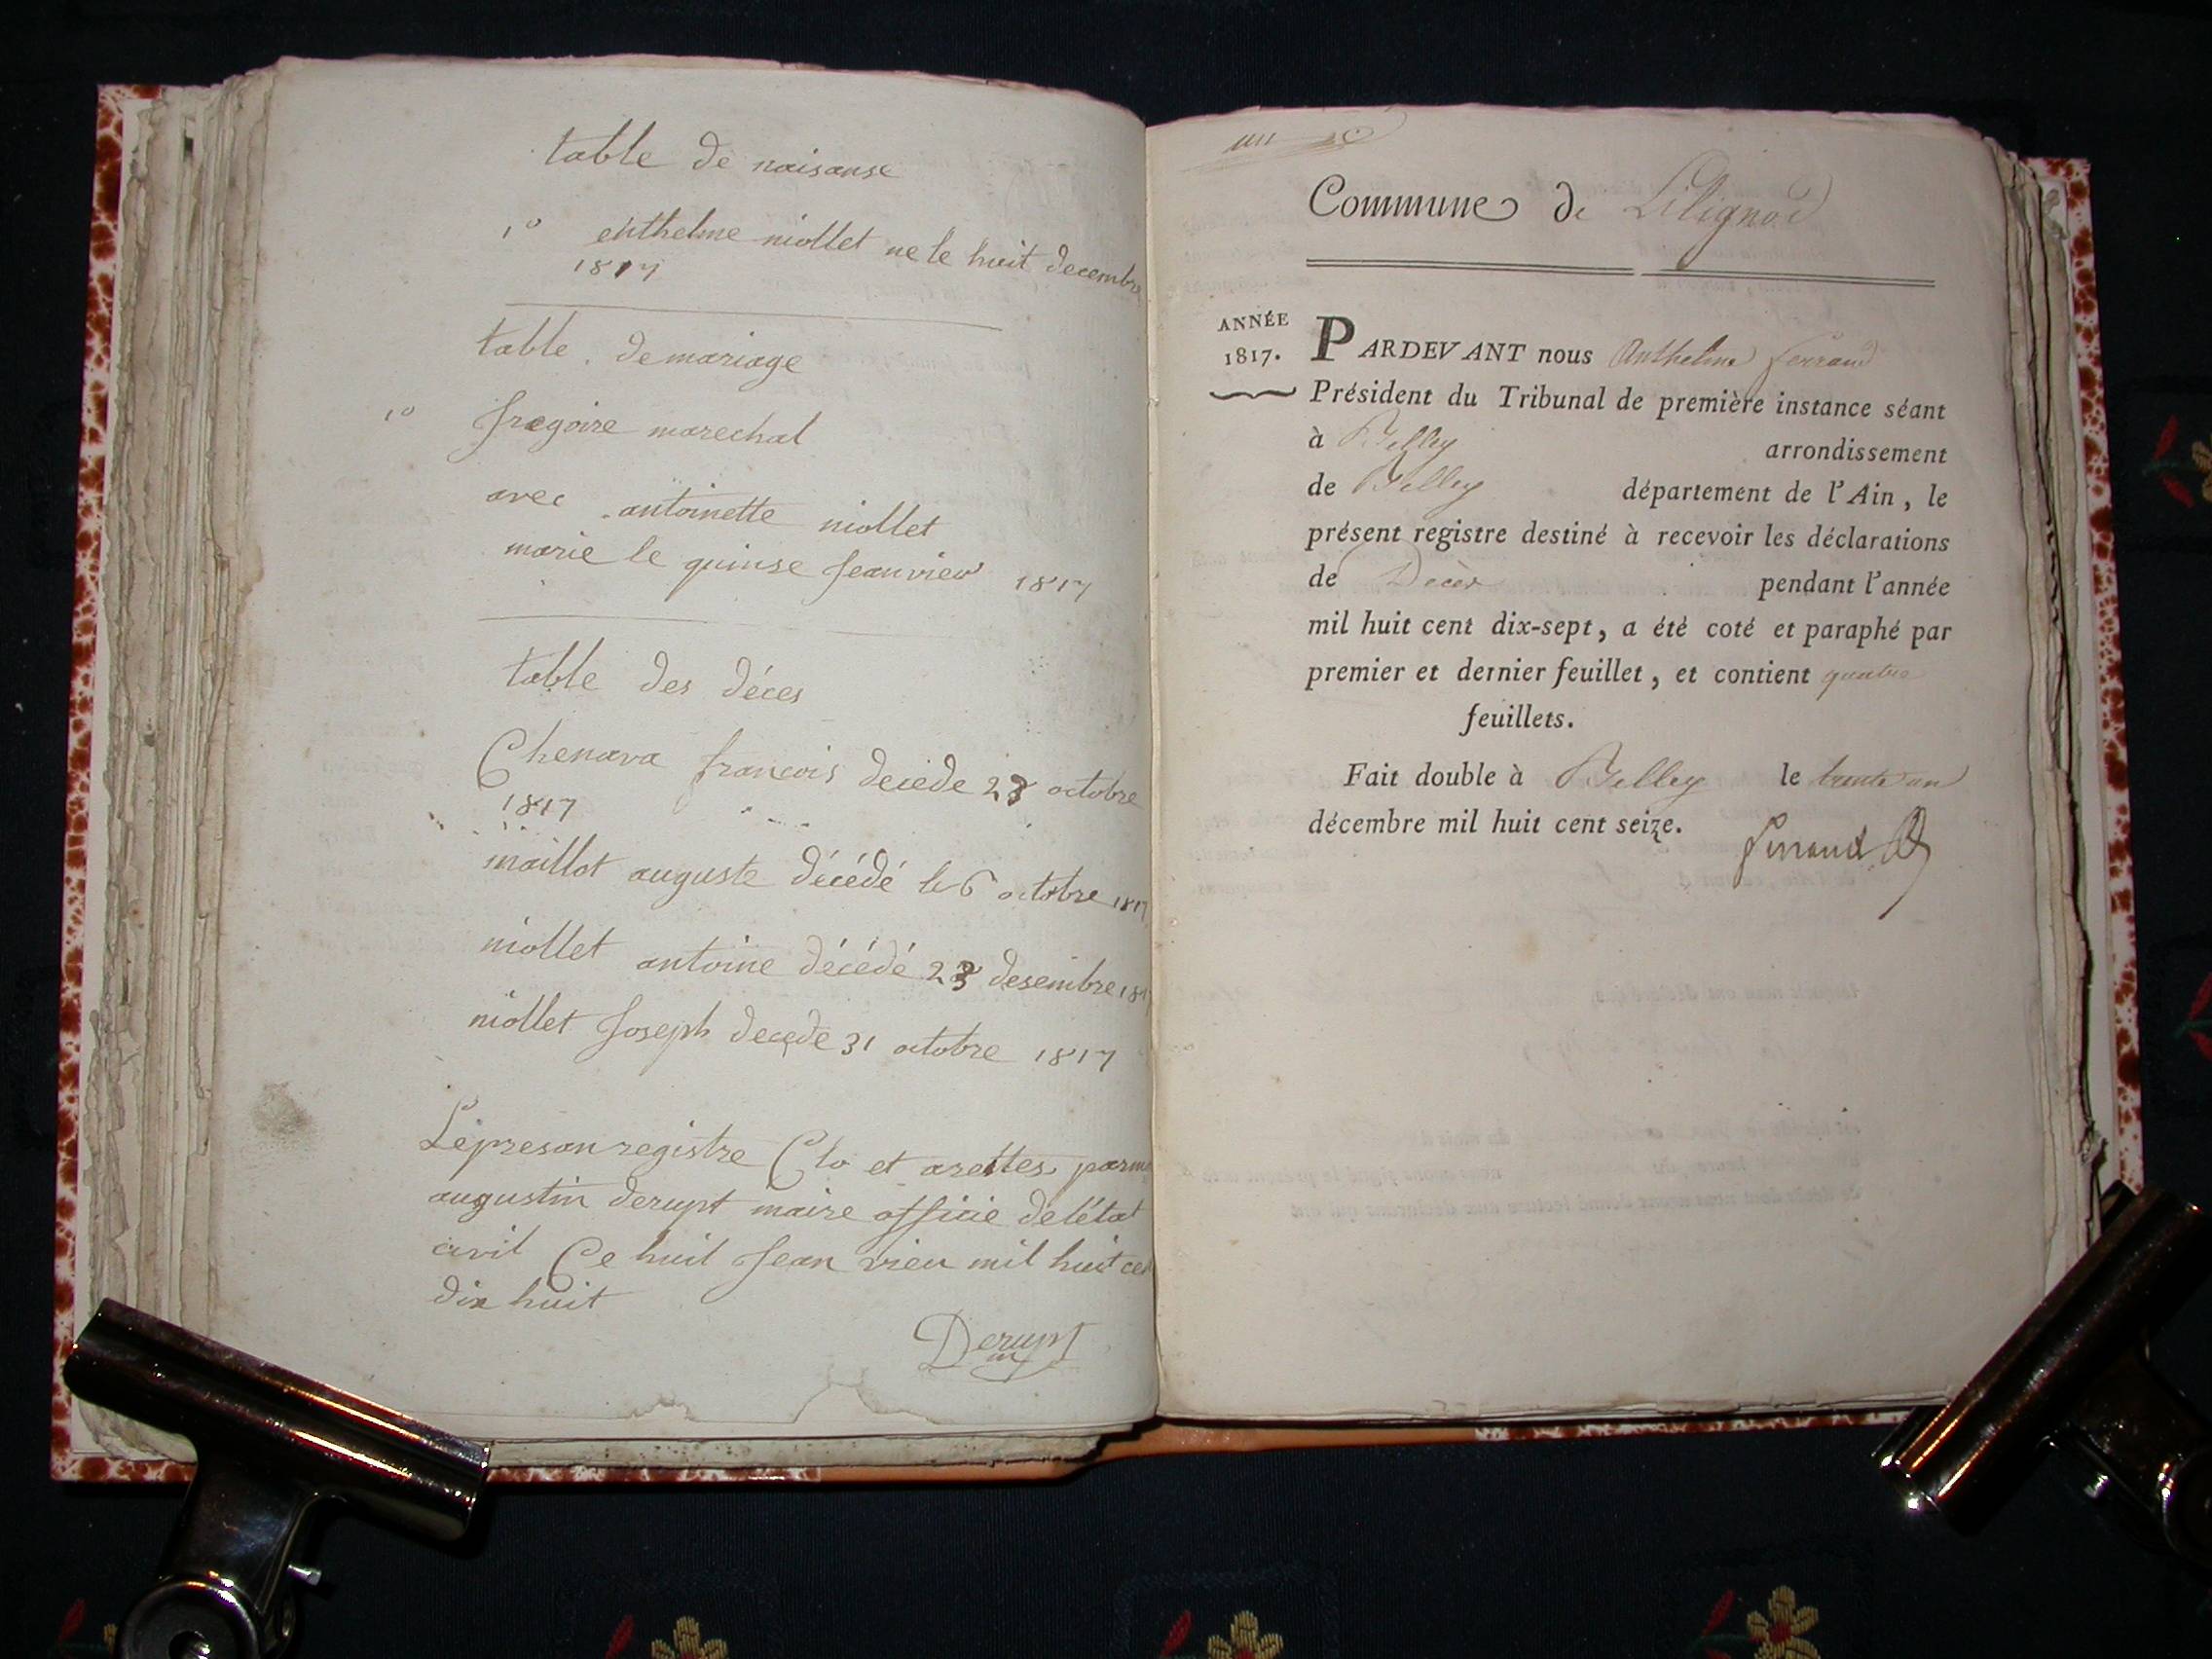 table de naisanse
1o enthelme niollet ne le huit decembre
1817
table de mariage
1o fregoire marechal
avec antoinette niollet
marie le quinse jeanvier 1817
table des déces
Chenava francois decede 23 octobre
1817
maillot auguste décédé le 6 octobre 1817
niollet antoine décédé 23 desembre 181
niollet joseph decede 31 octobre 1817
Lepresan registre Clo et arettes parm
augustin derupt maire officie de létat
civil Ce huit jean vieu mil huit cen
dix huit
Derupt
un
Commune de Lilignod
ANNÉE
1817.
PARDEVANT nous Anthelme ferrand
Président du Tribunal de première instance séant
à Belley arrondissement
de Belley département de l'Ain, le
présent registre destiné à recevoir les déclarations
de Décès pendant l'année
mil huit cent dix-sept, a été coté et paraphé par
premier et dernier feuillet, et contient quatre
feuillets.
Fait double à Belley le trente un
décembre mil huit cent seize.
ferrand